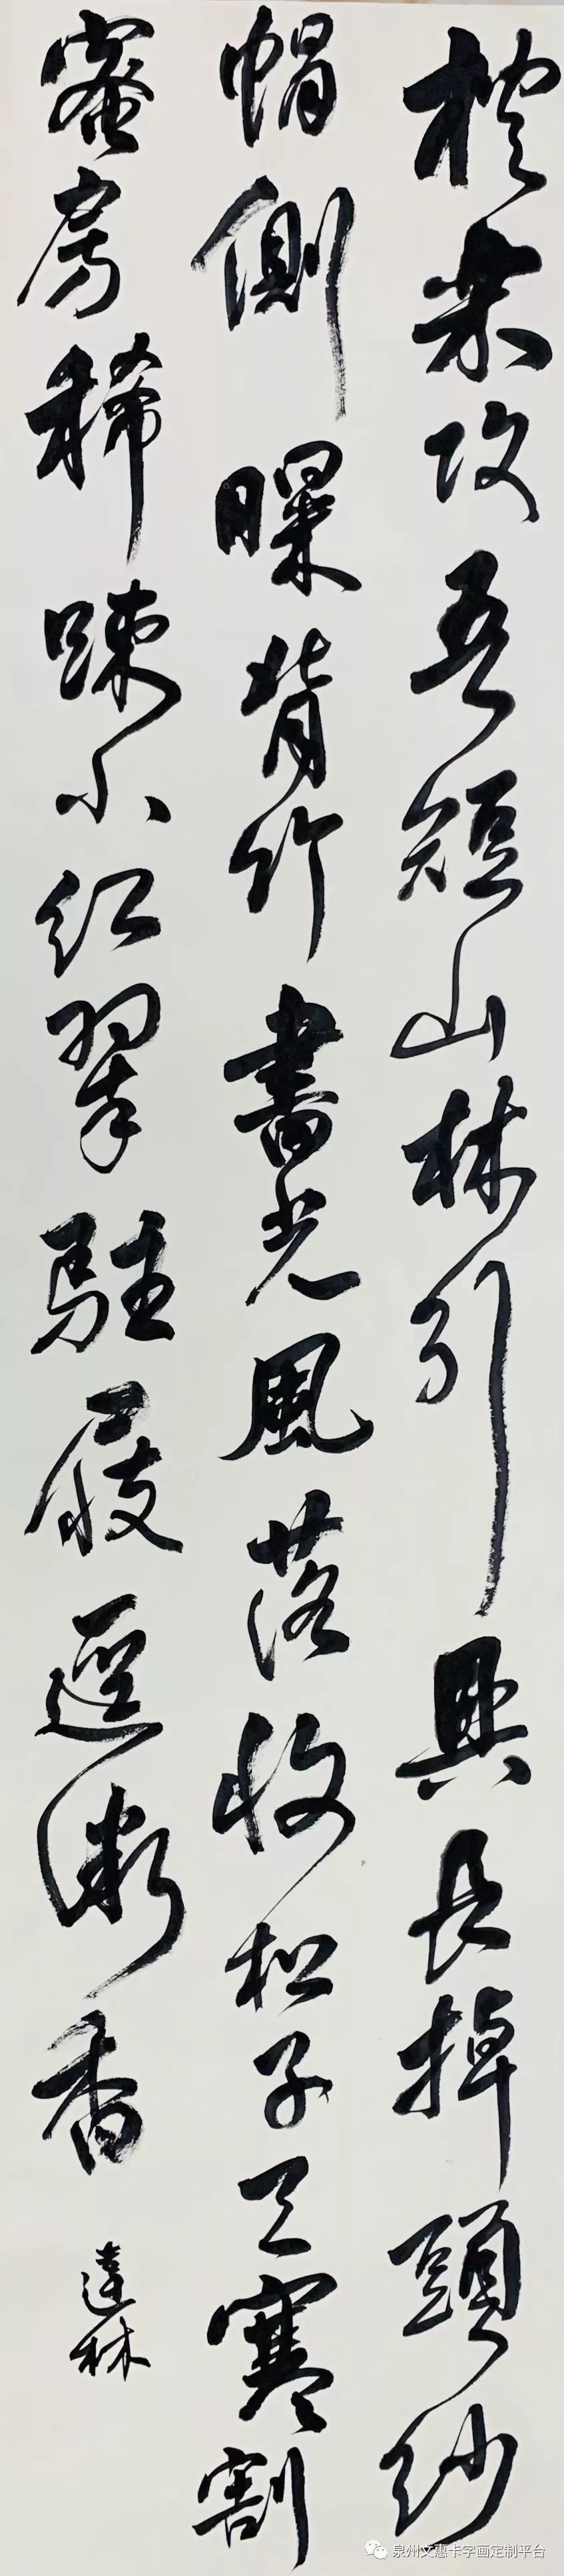 禮樂攻吾短山林引興長掉頭紗
帽側曝背竹書光風落收松子天寒割
蜜房稀踈小紅翠駐屐逕微香
達林
泉州文惠卡字画定制平台